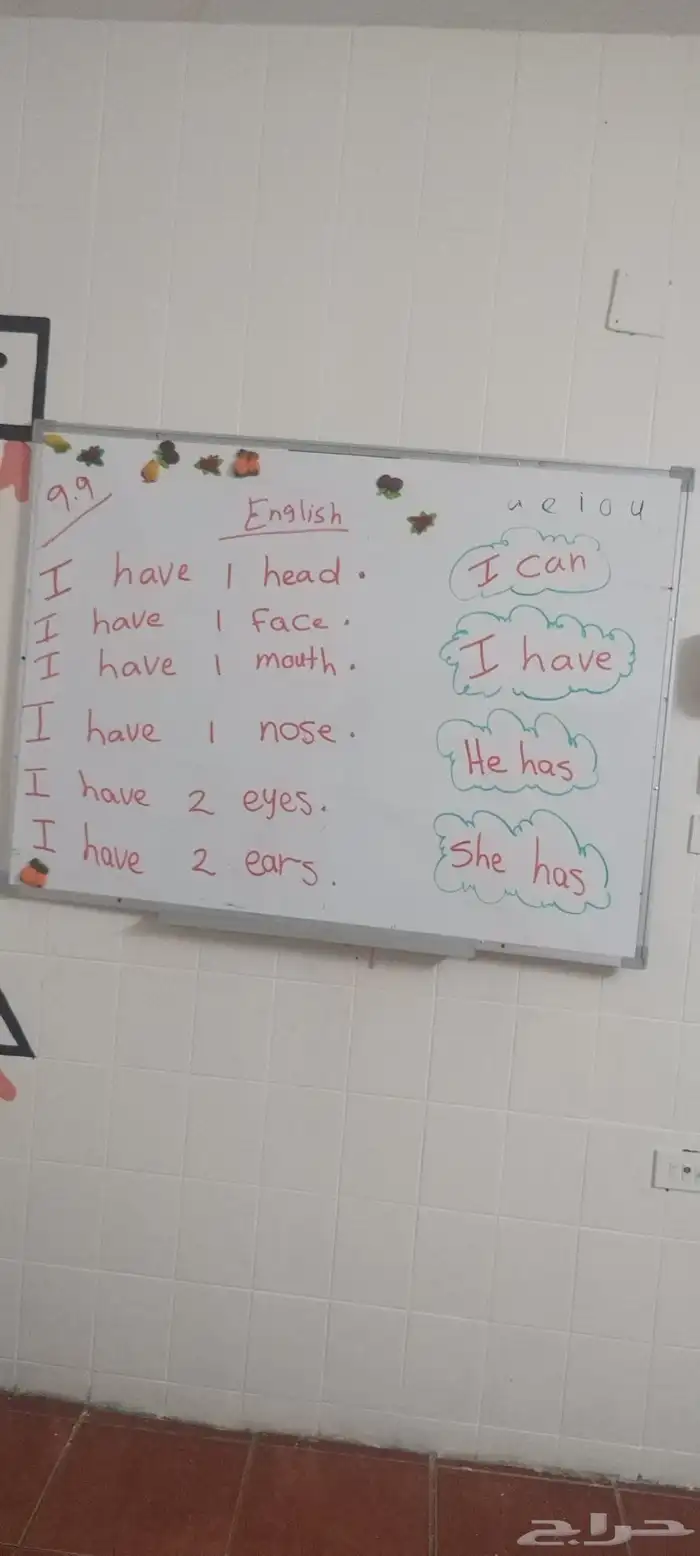 9.9
English
a e i o u
I have 1 head.
I have 1 face.
I have 1 mouth.
I have 1 nose.
I have 2 eyes.
I have 2 ears.
I can
I have
He has
She has
حراج